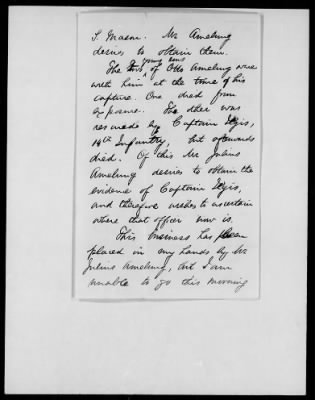 T. Mason. Mr Ameling
desires to obtain them.
The two young sons of Otto Ameling were
with him at the time of his
capture. One died from
exposure. The other was
rescued by Captain Ilgis,
14th Infantry, but afterwards
died. Of this Mr Julius
Ameling desires to obtain the
evidence of Captain Ilgis,
and therefore wishes to ascertain
where that officer now is.
This business has been
placed in my hands by Mr
Julius Ameling, but I am
unable to go this morning